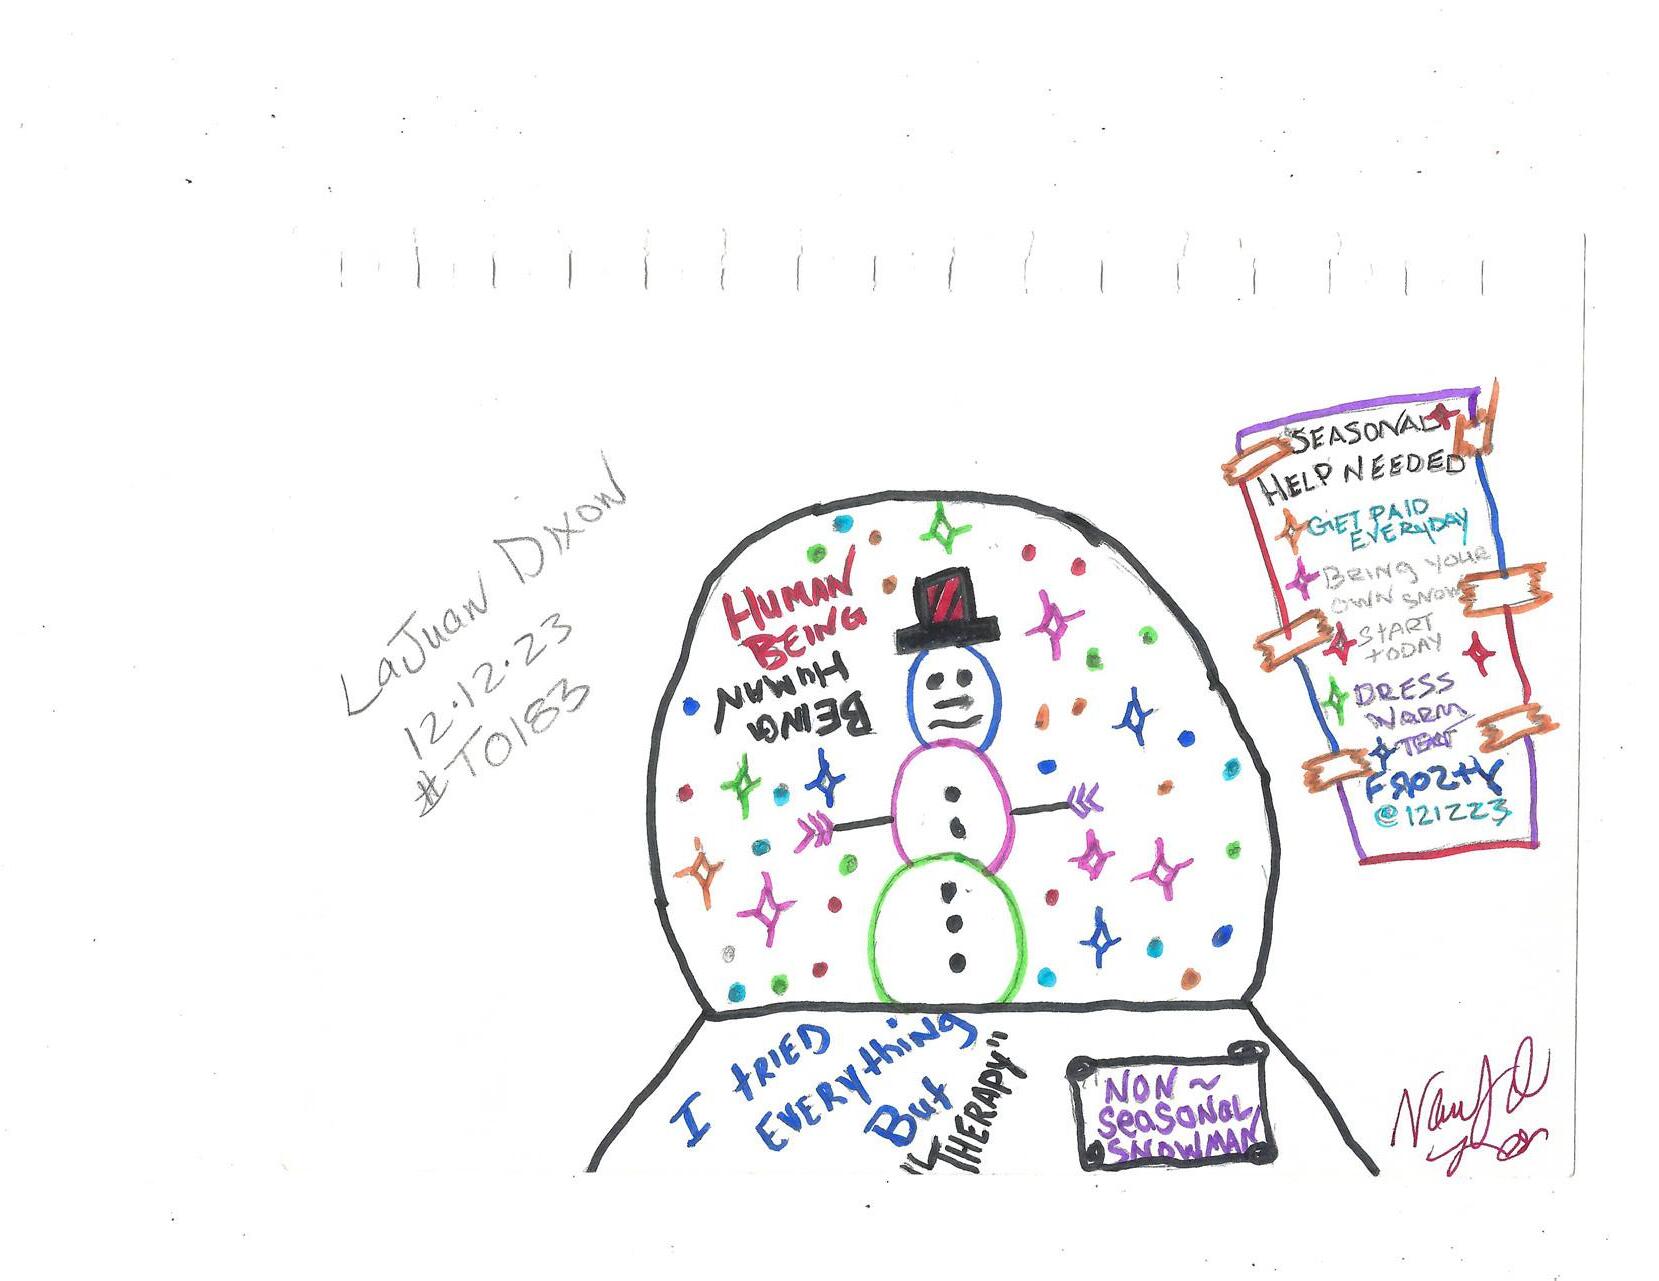 LaJuan Dixon
12.12.23
#T0183
HUMAN
BEING
HUMAN
BEING
I tRIED
EVERYthing
But
"THERAPY"
NON~
SeaSONal
SNOWMAN
SEASONAL
HELP NEEDED
GET PAID
EVERYDAY
BRING YOUR
OWN SNOW
StART
tODAY
DRESS
WARM
TEXT
FROStY
@121223